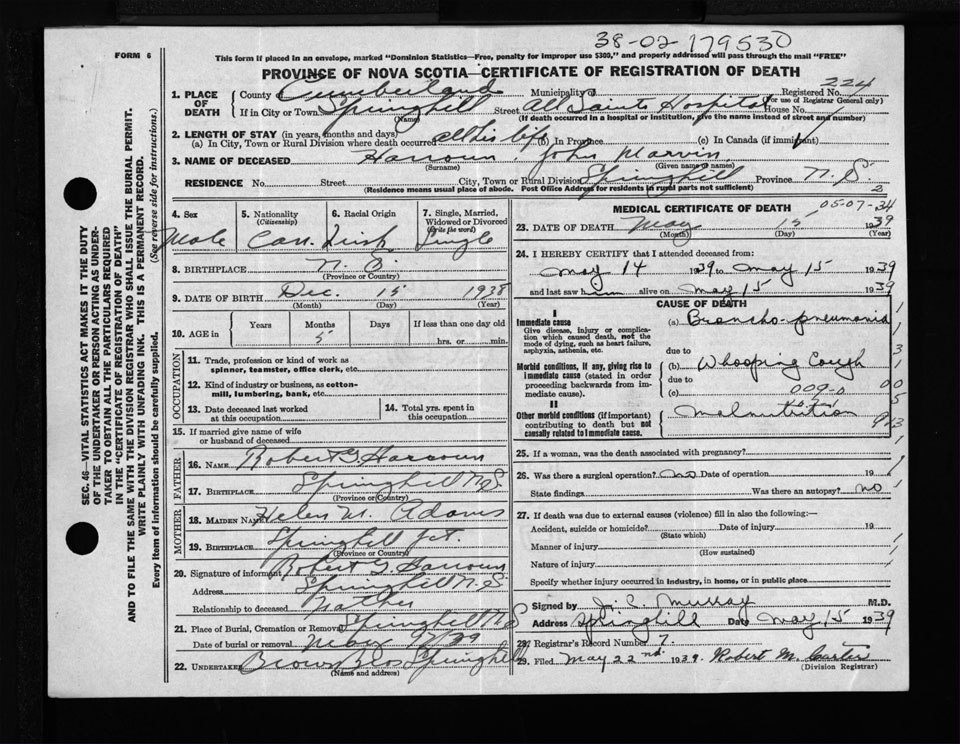 38-02 179530
FORM 6
This form if placed in an envelope, marked "Dominion Statistics—Free, penalty for improper use $300," and properly addressed will pass through the mail "FREE"
PROVINCE OF NOVA SCOTIA—CERTIFICATE OF REGISTRATION OF DEATH
1. PLACE OF DEATH County of Cumberland Municipality of Registered No. 224
(For use of Registrar General only)
If in City or Town Springhill Street All Saints Hospital House No.
(Name) (If death occurred in a hospital or institution, give the name instead of street and number)
2. LENGTH OF STAY (in years, months and days)
(a) In City, Town or Rural Division where death occurred all his life (b) In Province (c) In Canada (if immigrant)
3. NAME OF DECEASED Harroun, John Marvin
(Surname) (Given name or names)
RESIDENCE No. Street City, Town or Rural Division Springhill Province N.S.
(Residence means usual place of abode. Post Office Address for residents in rural parts not sufficient) 2
4. Sex Male
5. Nationality (Citizenship) Can.
6. Racial Origin Irish
7. Single, Married, Widowed or Divorced (Write the word) Single
8. BIRTHPLACE N.S.
(Province or Country)
9. DATE OF BIRTH Dec. 15 1938
(Month) (Day) (Year)
10. AGE in Years Months 5 Days If less than one day old hrs. or min.
OCCUPATION
11. Trade, profession or kind of work as spinner, teamster, office clerk, etc.
12. Kind of industry or business, as cotton-mill, lumbering, bank, etc.
13. Date deceased last worked at this occupation
14. Total yrs. spent in this occupation
15. If married give name of wife or husband of deceased
FATHER
16. NAME Robert G. Harroun
17. BIRTHPLACE Springhill N.S.
(Province or Country)
MOTHER
18. MAIDEN NAME Helen M. Adams
19. BIRTHPLACE Springhill Jct.
(Province or Country)
20. Signature of informant Robert G. Harroun
Address Springhill N.S.
Relationship to deceased Father
21. Place of Burial, Cremation or Removal Springhill N.S.
Date of burial or removal May
22. UNDERTAKER Brown Bros Springhill
(Name and address)
MEDICAL CERTIFICATE OF DEATH 05-07-34
23. DATE OF DEATH May 15 1939
(Month) (Day) (Year)
24. I HEREBY CERTIFY that I attended deceased from:
May 14 1939 to May 15 1939
and last saw him alive on May 15 1939
CAUSE OF DEATH
I
Immediate cause
Give disease, injury or complication which caused death, not the mode of dying, such as heart failure, asphyxia, asthenia, etc.
(a) Broncho-pneumonia
due to
Morbid conditions, if any, giving rise to immediate cause (stated in order proceeding backwards from immediate cause).
(b) Whooping Cough
due to
(c) 009-0
II
Other morbid conditions (if important) contributing to death but not causally related to immediate cause.
Malnutrition
25. If a woman, was the death associated with pregnancy?
26. Was there a surgical operation? no Date of operation 19
State findings Was there an autopsy? no
27. If death was due to external causes (violence) fill in also the following:—
Accident, suicide or homicide? Date of injury 19
(State which)
Manner of injury
(How sustained)
Nature of injury
Specify whether injury occurred in industry, in home, or in public place
Signed by J. C. Murray M.D.
Address Springhill Date May 15 1939
28. Registrar's Record Number 7.
29. Filed May 22nd. 1939 Robert M. Carter
(Division Registrar)
SEC. 46—VITAL STATISTICS ACT MAKES IT THE DUTY
OF THE UNDERTAKER OR PERSON ACTING AS UNDER-
TAKER TO OBTAIN ALL THE PARTICULARS REQUIRED
IN THE "CERTIFICATE OF REGISTRATION OF DEATH"
AND TO FILE THE SAME WITH THE DIVISION REGISTRAR WHO SHALL ISSUE THE BURIAL PERMIT.
WRITE PLAINLY WITH UNFADING INK. THIS IS A PERMANENT RECORD.
Every item of Information should be carefully supplied. (See reverse side for instructions.)